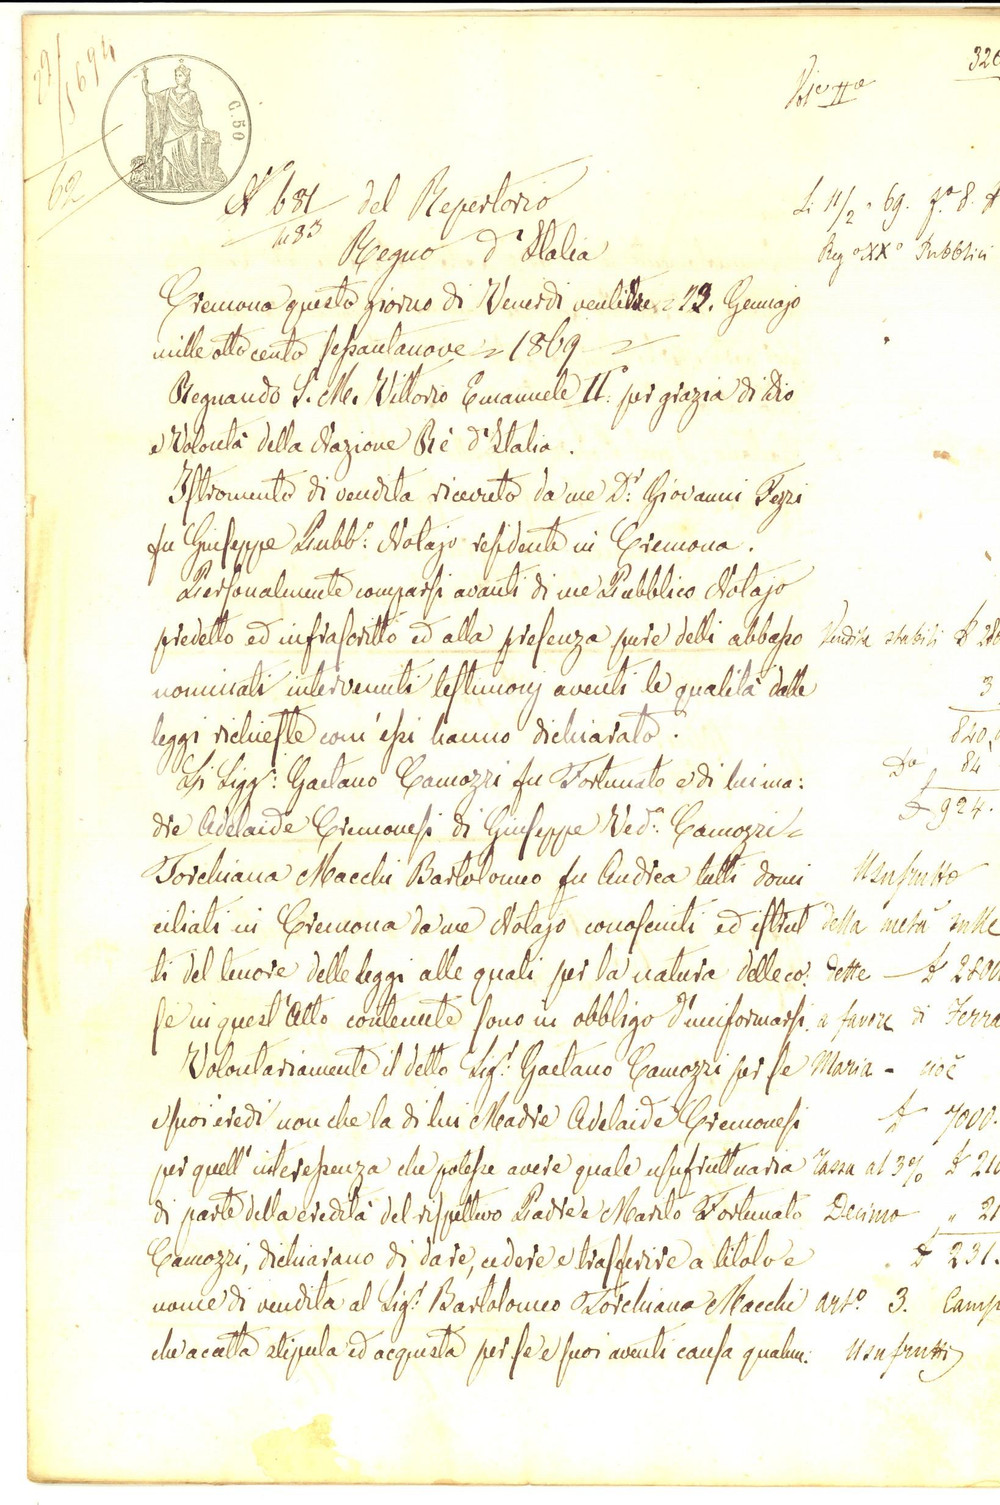 C. 50
N° 681 del Repertorio
Regno d'Italia
Cremona questo giorno di Venerdi ventitre 23. Gennajo
mille otto cento sessantanove = 1869 =
Regnando S. M. Vittorio Emanuele II. per grazia di Dio
e Volontà della Nazione Rè d'Italia.
Istromento di vendita ricevuto da me Dr. Giovanni Fezzi
fu Giuseppe Pubbo: Notajo residente in Cremona.
Personalmente comparsi avanti di me Pubblico Notajo
predetto ed infrascritto ed alla presenza pure delli abbasso
nominati intervenuti testimonj aventi le qualità dalle
leggi richieste com'essi hanno dichiarato.
Li Sigri: Gaetano Camozzi fu Fortunato e di lui ma:
dre Adelaide Cremonesi di Giuseppe Veda. Camozzi =
Torchiana Macchi Bartolomeo fu Andrea tutti domi
ciliati in Cremona da me Notajo conosciuti ed istrut
ti del tenore delle leggi alle quali per la natura delle co:
se in quest'Atto contenute sono in obbligo d'uniformarsi.
Volontariamente il detto Sigr. Gaetano Camozzi per se
e suoi eredi non che la di lui Madre Adelaide Cremonesi
per quell'interessenza che potesse avere quale usufruttuaria
di parte della eredità del rispettivo Padre e Marito Fortunato
Camozzi, dichiarano di dare, cedere e trasferire a titolo e
nome di vendita al Sigr. Bartolomeo Torchiana Macchi
che accetta stipula ed acquista per se e suoi aventi causa qualun:
Li 11/2 69.
Reg° XX° Pubblici
Vendita stabili £ 280
3
840,
84
£ 924.
Usufrutto
della metà sulle
dette — £ 2800
a favore di Ferra
Maria - cioè
£ 7000.
Tassa al 3% £ 210
Decimo " 21
£ 231.
Art°. 3. Camp
Usufrutti